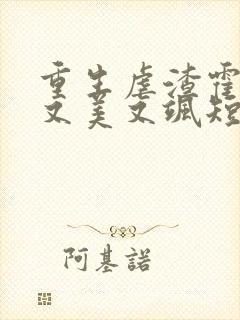 重生虐渣霍
又美又飒短
阿基諾